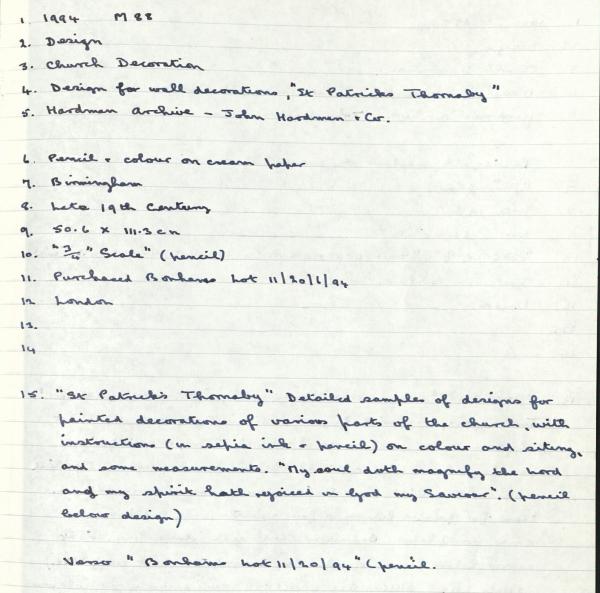 1. 1994 M 88
2. Design
3. Church Decoration
4. Design for wall decorations, "St Patricks Thornaby"
5. Hardman Archive - John Hardman & Co.
6. Pencil & colour on cream paper
7. Birmingham
8. Late 19th Century
9. 50.6 x 111.3 cm
10. "3/4" Scale" (pencil)
11. Purchased Bonhams Lot 11/20/6/94
12 London
13.
14
15. "St Patrick's Thornaby" Detailed samples of designs for
painted decorations of various parts of the church, with
instructions (in sepia ink & pencil) on colour and siting,
and some measurements. "My soul doth magnify the Lord
and my spirit hath rejoiced in God my Saviour". (pencil
below design)
Verso "Bonhams Lot 11/20/94" (pencil.